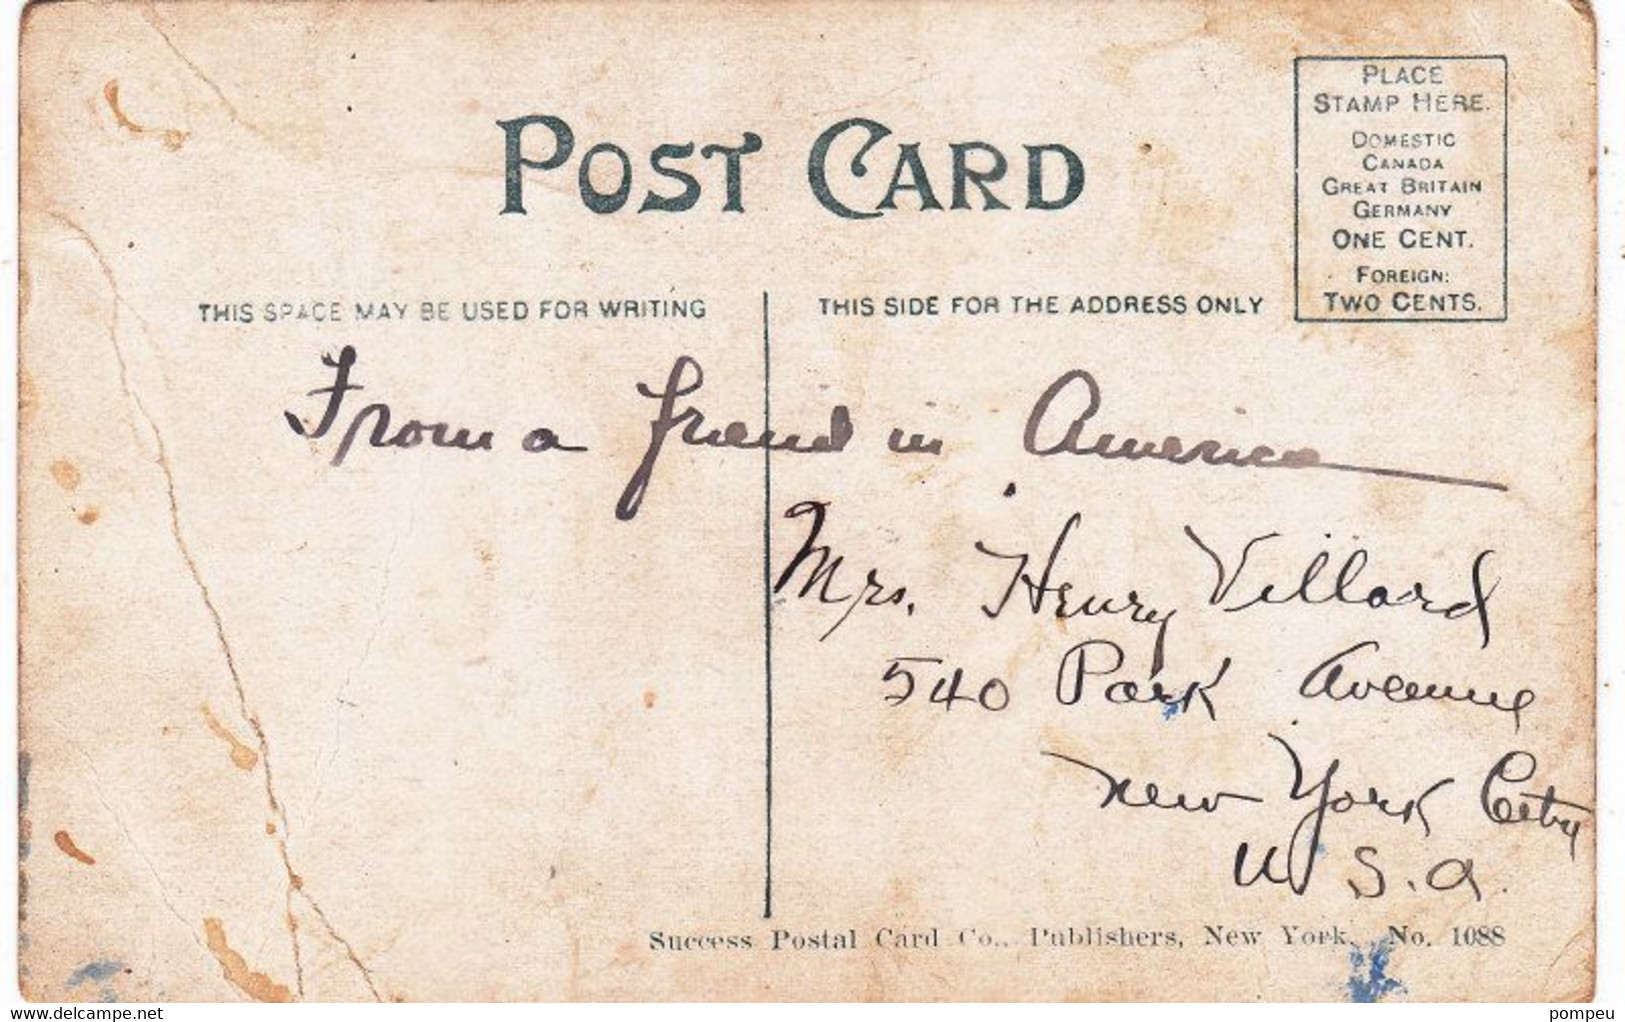 POST CARD
PLACE
STAMP HERE.
DOMESTIC
CANADA
GREAT BRITAIN
GERMANY
ONE CENT.
FOREIGN:
TWO CENTS.
THIS SPACE MAY BE USED FOR WRITING
THIS SIDE FOR THE ADDRESS ONLY
From a friend in America
Mrs. Henry Villard
540 Park Avenue
New York City
U S. A.
Success Postal Card Co., Publishers, New York. No. 1088
delcampe.net
pompeu